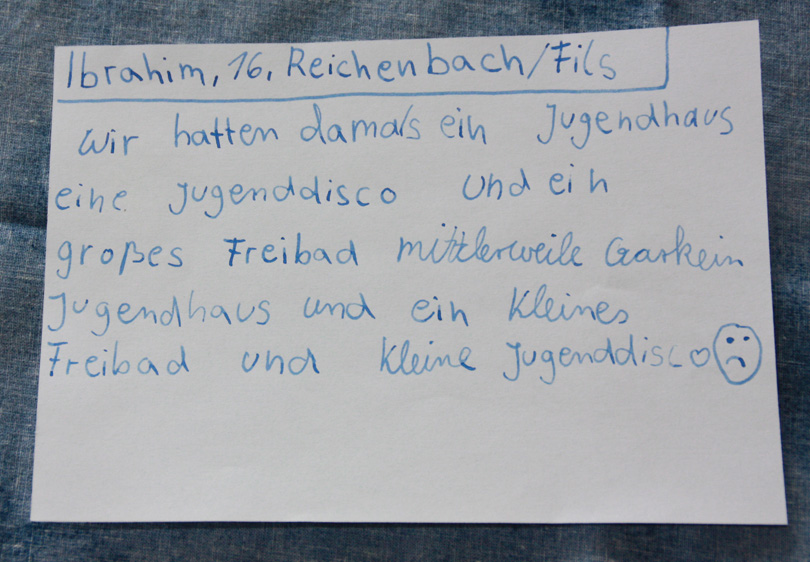 Ibrahim, 16, Reichenbach/Fils
Wir hatten damals ein Jugendhaus
eine Jugenddisco und ein
großes Freibad mittlerweile Garkein
Jugendhaus und ein kleines
Freibad und kleine Jugenddisco